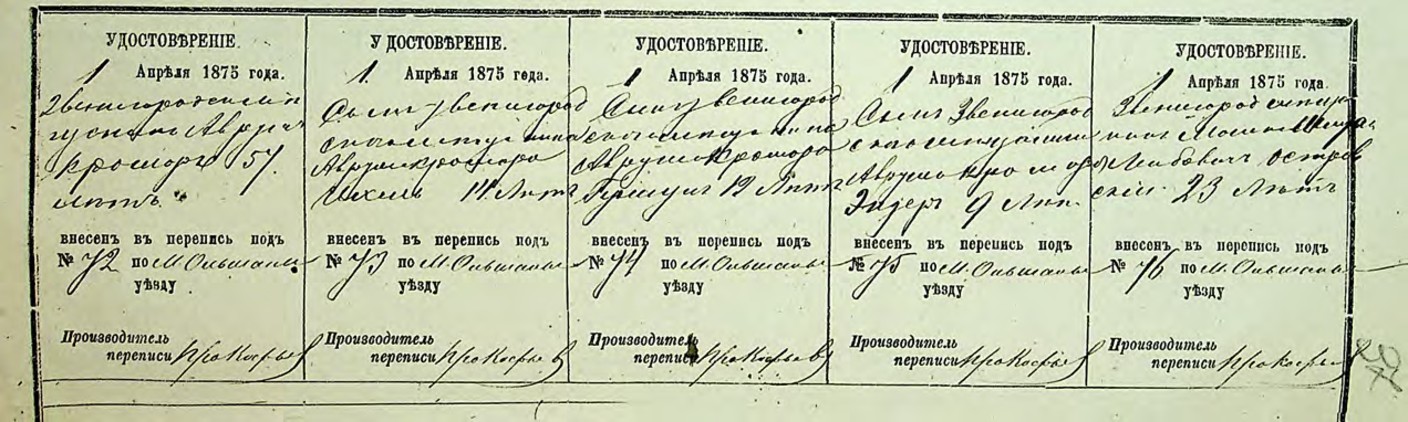 УДОСТОВѢРЕНІЕ.
1 Апрѣля 1875 года.
Аврумъ
57
лѣтъ
внесенъ въ перепись подъ
№ 72 по м. Ольшаны
уѣзду
Производитель
переписи Прокофьевъ
УДОСТОВѢРЕНІЕ.
1 Апрѣля 1875 года.
Сынъ Звенигород
скаго мещанина
Аврума
14 Лѣтъ
внесенъ въ перепись подъ
№ 73 по м. Ольшаны
уѣзду
Производитель
переписи Прокофьевъ
УДОСТОВѢРЕНІЕ.
1 Апрѣля 1875 года.
Сынъ Звенигород
скаго мещанина
Аврума
12 Лѣтъ
внесенъ въ перепись подъ
№ 74 по м. Ольшаны
уѣзду
Производитель
переписи Прокофьевъ
УДОСТОВѢРЕНІЕ.
1 Апрѣля 1875 года.
Сынъ Звенигород
скаго мещанина
Аврума
9 Лѣтъ
внесенъ въ перепись подъ
№ 75 по м. Ольшаны
уѣзду
Производитель
переписи Прокофьевъ
УДОСТОВѢРЕНІЕ.
1 Апрѣля 1875 года.
Мошко
Лейбовичъ Остров
скій 23 Лѣтъ
внесенъ въ перепись подъ
№ 76 по м. Ольшаны
уѣзду
Производитель
переписи Прокофьевъ